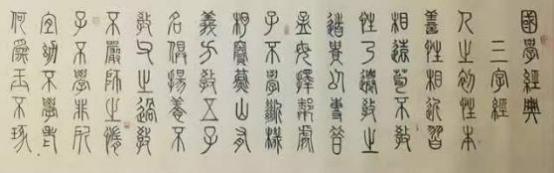 國學經典
三字經
人之初性本
善性相近習
相遠苟不教
性乃遷教之
道貴以專昔
孟母擇鄰處
子不學斷機
杼竇燕山有
義方教五子
名俱揚養不
教父之過教
不嚴師之惰
子不學非所
宜幼不學老
何為玉不琢